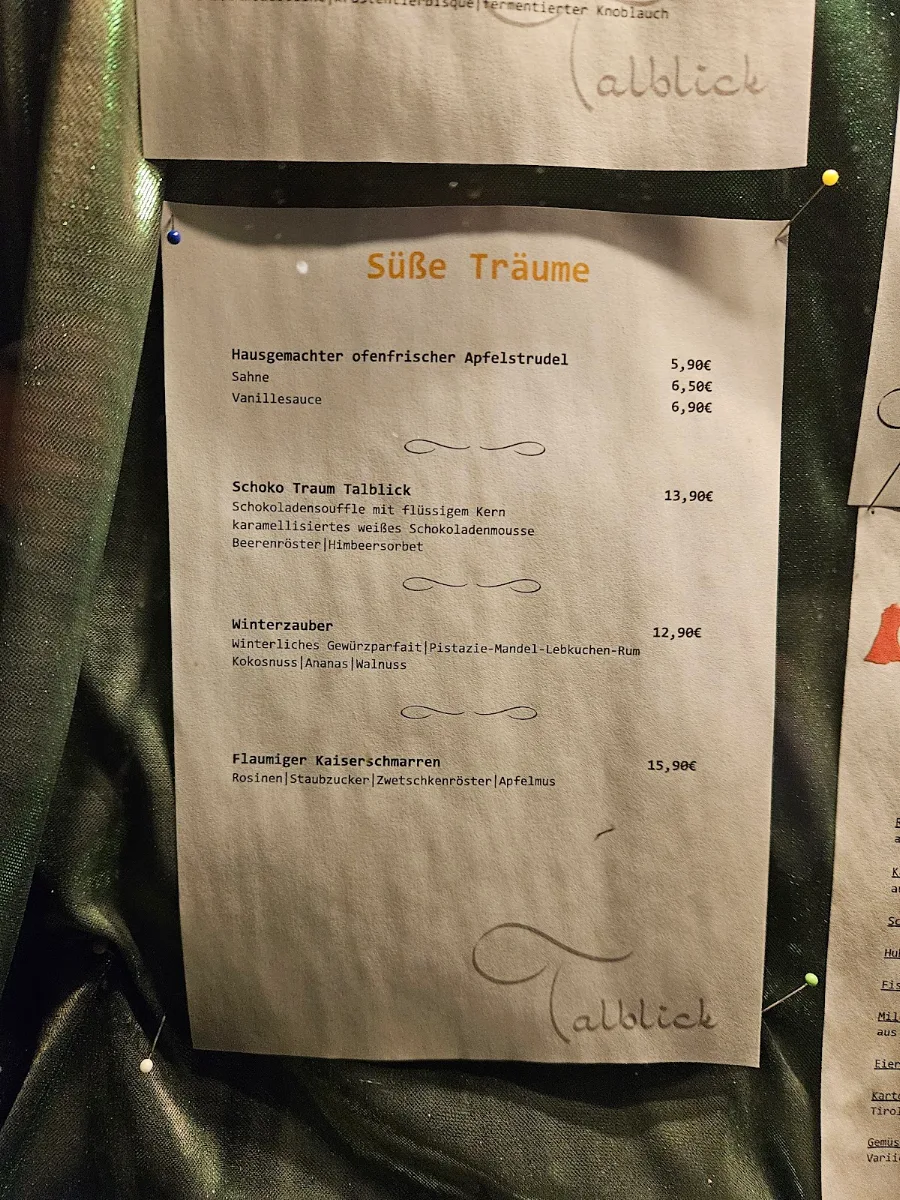 fermentierter Knoblauch
Talblick
Süße Träume
Hausgemachter ofenfrischer Apfelstrudel 5,90€
Sahne 6,50€
Vanillesauce 6,90€
Schoko Traum Talblick 13,90€
Schokoladensouffle mit flüssigem Kern
karamellisiertes weißes Schokoladenmousse
Beerenröster|Himbeersorbet
Winterzauber 12,90€
Winterliches Gewürzparfait|Pistazie-Mandel-Lebkuchen-Rum
Kokosnuss|Ananas|Walnuss
Flaumiger Kaiserschmarren 15,90€
Rosinen|Staubzucker|Zwetschkenröster|Apfelmus
Talblick
aus